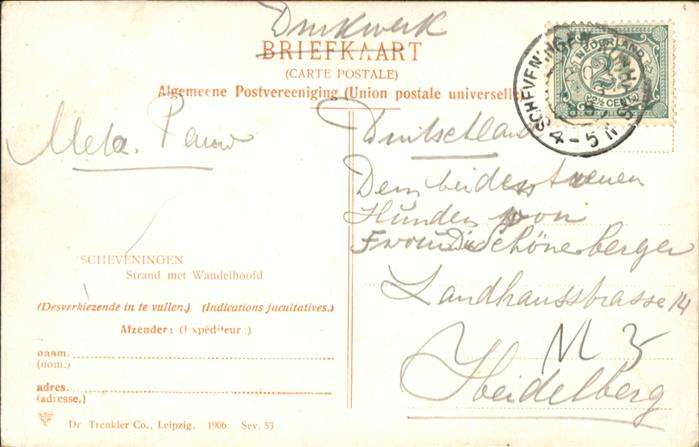 Drukwerk
BRIEFKAART
(CARTE POSTALE)
Algemeene Postvereeniging (Union postale universelle)
NEDERLAND
2½
2½ CENT
SCHEVENINGEN
4-5 N
Meta.
Duitschland
Dem beiden treuen
Hunden von
Schöneberger
Landhausstrasse 14
M 3
Heidelberg
SCHEVENINGEN
Strand met Wandelhoofd
(Desverkiezende in te vullen.) (Indications facultatives.)
Afzender: (Expéditeur:)
naam.
(nom.)
adres.
(adresse.)
Dr Trenkler Co., Leipzig. 1906 Sev. 53